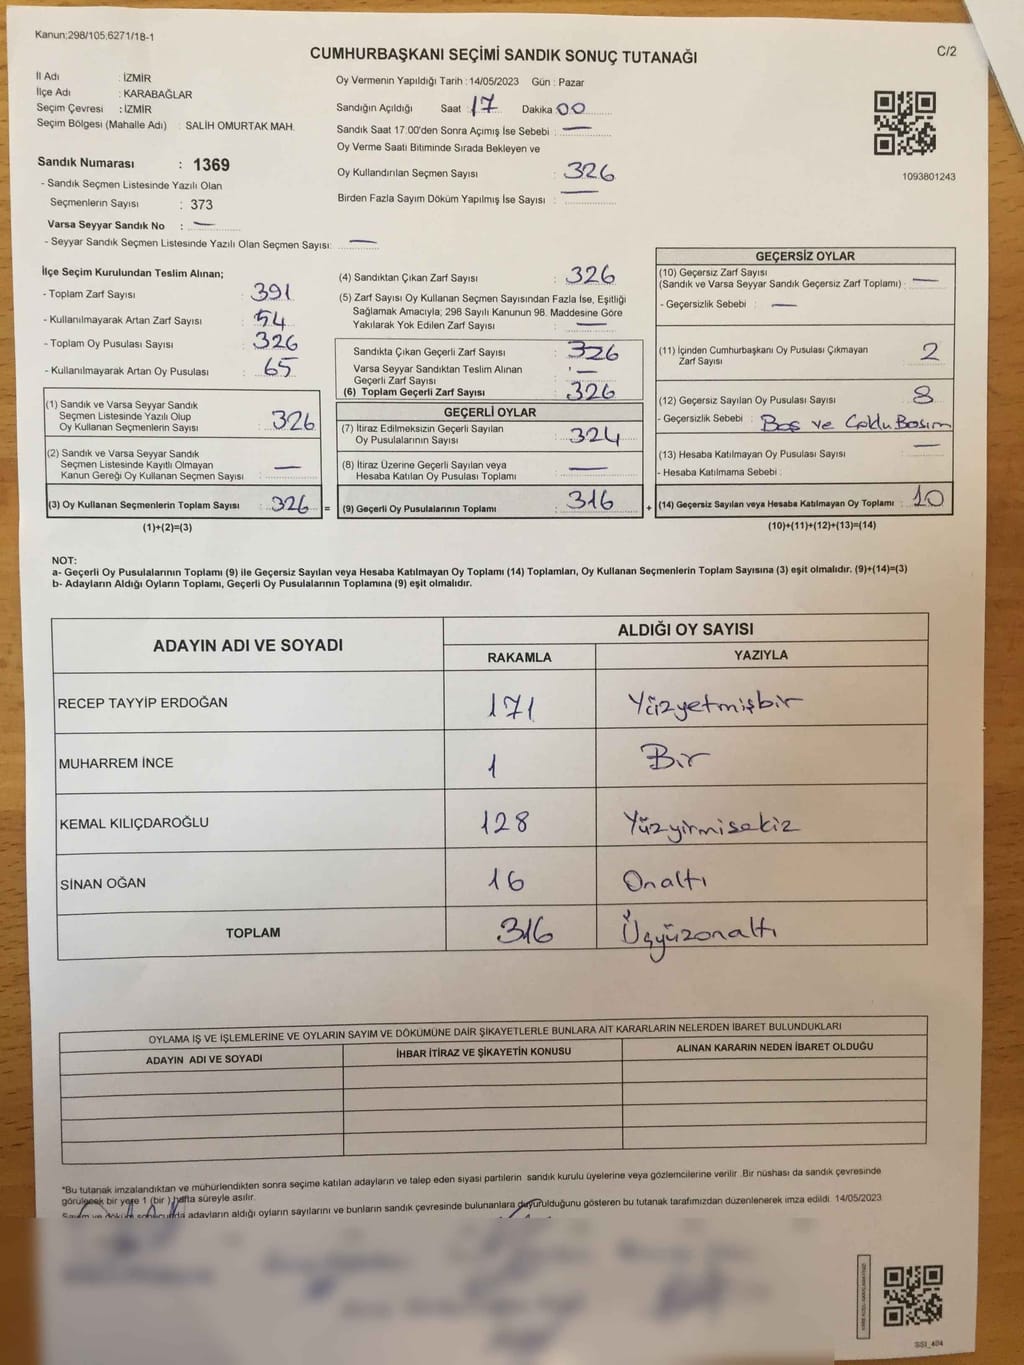 Kanun;298/105,6271/18-1
C/2
CUMHURBAŞKANI SEÇİMİ SANDIK SONUÇ TUTANAĞI
İl Adı : İZMİR
İlçe Adı : KARABAĞLAR
Seçim Çevresi : İZMİR
Seçim Bölgesi (Mahalle Adı) : SALİH OMURTAK MAH.
Sandık Numarası : 1369
- Sandık Seçmen Listesinde Yazılı Olan
Seçmenlerin Sayısı : 373
Varsa Seyyar Sandık No : —
- Seyyar Sandık Seçmen Listesinde Yazılı Olan Seçmen Sayısı: —
Oy Vermenin Yapıldığı Tarih : 14/05/2023 Gün : Pazar
Sandığın Açıldığı Saat : 17 Dakika 00
Sandık Saat 17:00'den Sonra Açımış İse Sebebi : —
Oy Verme Saati Bitiminde Sırada Bekleyen ve
Oy Kullandırılan Seçmen Sayısı : 326
Birden Fazla Sayım Döküm Yapılmış İse Sayısı : —
1093801243
İlçe Seçim Kurulundan Teslim Alınan;
- Toplam Zarf Sayısı : 391
- Kullanılmayarak Artan Zarf Sayısı : 54
- Toplam Oy Pusulası Sayısı : 326
- Kullanılmayarak Artan Oy Pusulası : 65
(1) Sandık ve Varsa Seyyar Sandık
Seçmen Listesinde Yazılı Olup
Oy Kullanan Seçmenlerin Sayısı : 326
(2) Sandık ve Varsa Seyyar Sandık
Seçmen Listesinde Kayıtlı Olmayan
Kanun Gereği Oy Kullanan Seçmen Sayısı : —
(3) Oy Kullanan Seçmenlerin Toplam Sayısı : 326 =
(1)+(2)=(3)
(4) Sandıktan Çıkan Zarf Sayısı : 326
(5) Zarf Sayısı Oy Kullanan Seçmen Sayısından Fazla İse, Eşitliği
Sağlamak Amacıyla; 298 Sayılı Kanunun 98. Maddesine Göre
Yakılarak Yok Edilen Zarf Sayısı : —
Sandıkta Çıkan Geçerli Zarf Sayısı : 326
Varsa Seyyar Sandıktan Teslim Alınan
Geçerli Zarf Sayısı : —
(6) Toplam Geçerli Zarf Sayısı : 326
GEÇERLİ OYLAR
(7) İtiraz Edilmeksizin Geçerli Sayılan
Oy Pusulalarının Sayısı : 324
(8) İtiraz Üzerine Geçerli Sayılan veya
Hesaba Katılan Oy Pusulası Toplamı : —
(9) Geçerli Oy Pusulalarının Toplamı : 316 +
GEÇERSİZ OYLAR
(10) Geçersiz Zarf Sayısı
(Sandık ve Varsa Seyyar Sandık Geçersiz Zarf Toplamı) : —
- Geçersizlik Sebebi : —
(11) İçinden Cumhurbaşkanı Oy Pusulası Çıkmayan
Zarf Sayısı : 2
(12) Geçersiz Sayılan Oy Pusulası Sayısı : 8
- Geçersizlik Sebebi : Boş ve Çoklu Basım
(13) Hesaba Katılmayan Oy Pusulası Sayısı : —
- Hesaba Katılmama Sebebi :
(14) Geçersiz Sayılan veya Hesaba Katılmayan Oy Toplamı : 10
(10)+(11)+(12)+(13)=(14)
NOT:
a- Geçerli Oy Pusulalarının Toplamı (9) ile Geçersiz Sayılan veya Hesaba Katılmayan Oy Toplamı (14) Toplamları, Oy Kullanan Seçmenlerin Toplam Sayısına (3) eşit olmalıdır. (9)+(14)=(3)
b- Adayların Aldığı Oyların Toplamı, Geçerli Oy Pusulalarının Toplamına (9) eşit olmalıdır.
ADAYIN ADI VE SOYADI ALDIĞI OY SAYISI
RAKAMLA YAZIYLA
RECEP TAYYİP ERDOĞAN 171 Yüzyetmişbir
MUHARREM İNCE 1 Bir
KEMAL KILIÇDAROĞLU 128 Yüzyirmisekiz
SİNAN OĞAN 16 Onaltı
TOPLAM 316 Üçyüzonaltı
OYLAMA İŞ VE İŞLEMLERİNE VE OYLARIN SAYIM VE DÖKÜMÜNE DAİR ŞİKAYETLERLE BUNLARA AİT KARARLARIN NELERDEN İBARET BULUNDUKLARI
ADAYIN ADI VE SOYADI İHBAR İTİRAZ VE ŞİKAYETİN KONUSU ALINAN KARARIN NEDEN İBARET OLDUĞU
*Bu tutanak imzalandıktan ve mühürlendikten sonra seçime katılan adayların ve talep eden siyasi partilerin sandık kurulu üyelerine veya gözlemcilerine verilir .Bir nüshası da sandık çevresinde
görülecek bir yere 1 (bir ) hafta süreyle asılır.
Sayım ve döküm sonucunda adayların aldığı oyların sayılarını ve bunların sandık çevresinde bulunanlara duyurulduğunu gösteren bu tutanak tarafımızdan düzenlenerek imza edildi. 14/05/2023
SSI_404